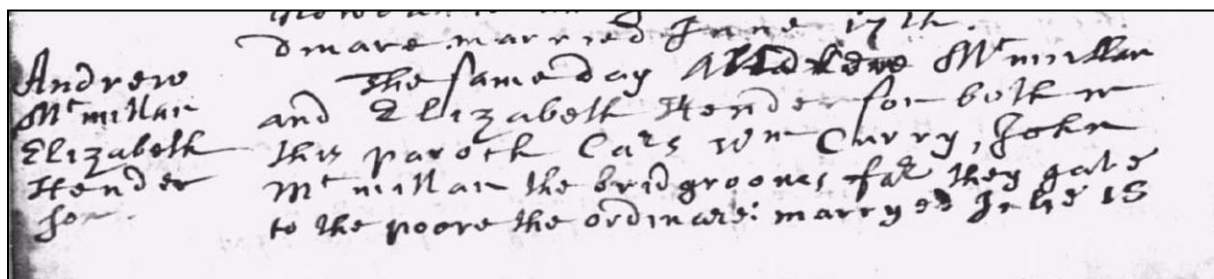 dinare married June 17th.
Andrew
Mc millan
Elizabeth
Hender
son.
The same day Andrew Mc millan
and Elizabeth Henderson both in
this paroch Cars Wm Curry, John
Mc millan the bridgrooms far they gave
to the poore the ordinare: marryed Julie 15